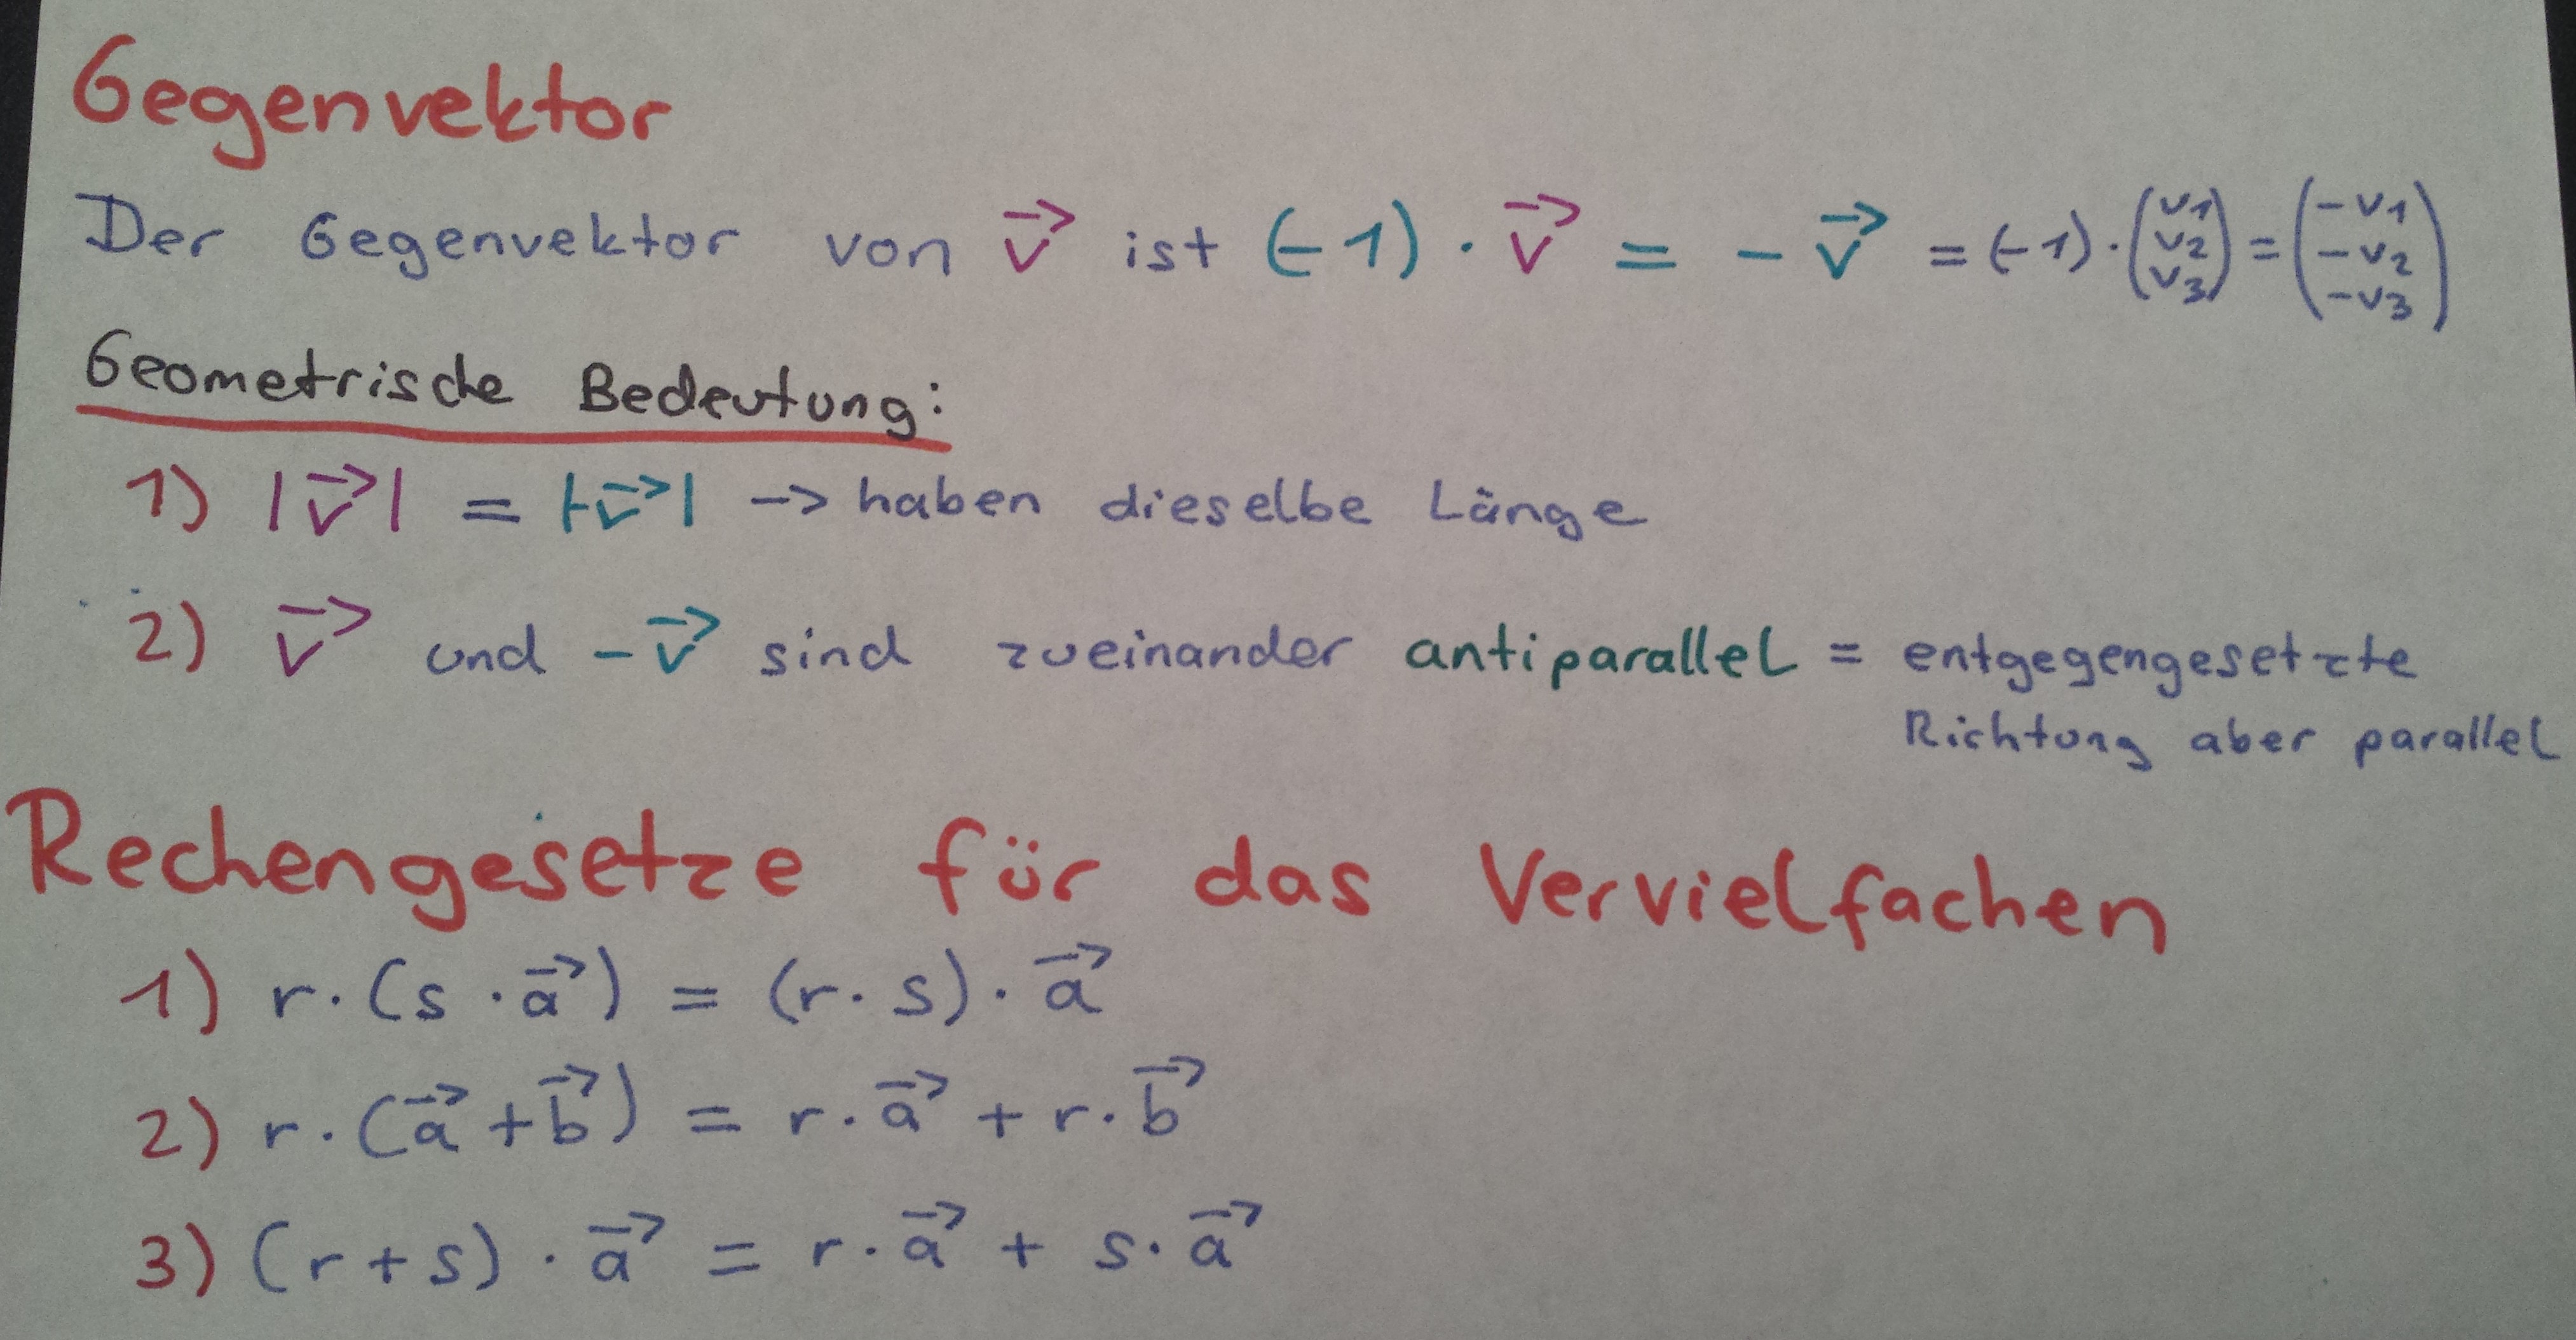 Gegenvektor
Der Gegenvektor von v⃗ ist (-1) · v⃗ = - v⃗ = (-1) · (v1 v2 v3) = (-v1 -v2 -v3)
Geometrische Bedeutung:
1) |v⃗| = |-v⃗| -> haben dieselbe Länge
2) v⃗ und -v⃗ sind zueinander antiparallel = entgegengesetzte
Richtung aber parallel
Rechengesetze für das Vervielfachen
1) r · (s · a⃗) = (r · s) · a⃗
2) r · (a⃗ + b⃗) = r · a⃗ + r · b⃗
3) (r + s) · a⃗ = r · a⃗ + s · a⃗